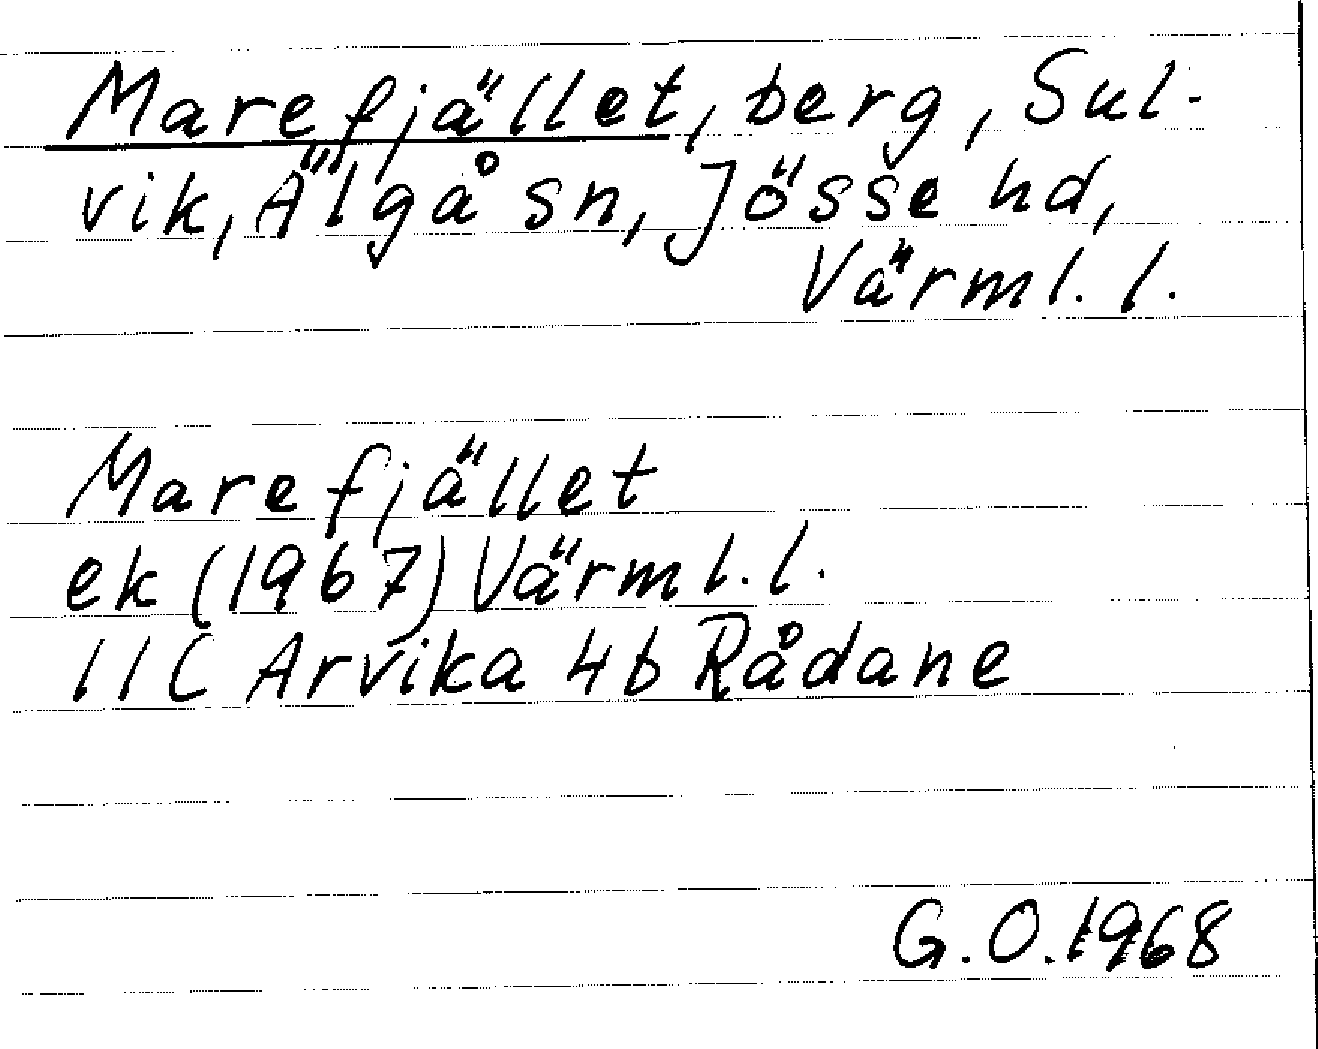 Marefjället, berg, Sul-
vik, Älgå sn, Jösse hd,
Värml. l.
Marefjället
ek (1967) Värml. l.
11C Arvika 4b Rådane
G.O. 1968